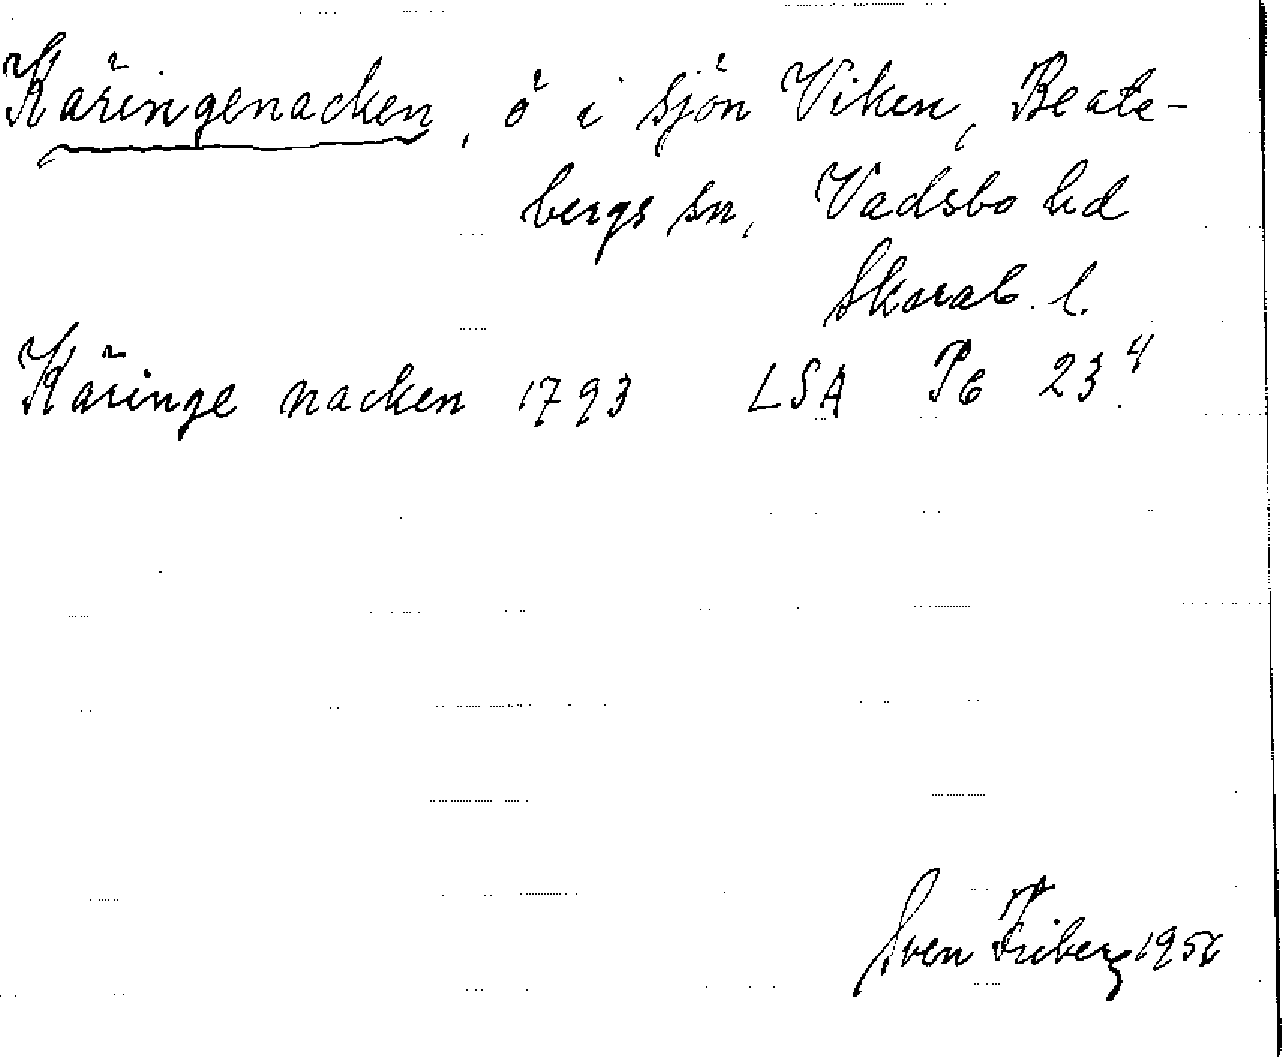 Käringenacken, ö i sjön Viken, Beate-
bergs sn, Vadsbo hd
Skarab. l.
Käringe nacken 1793 LSA P6 23⁴.
Sven Friberg